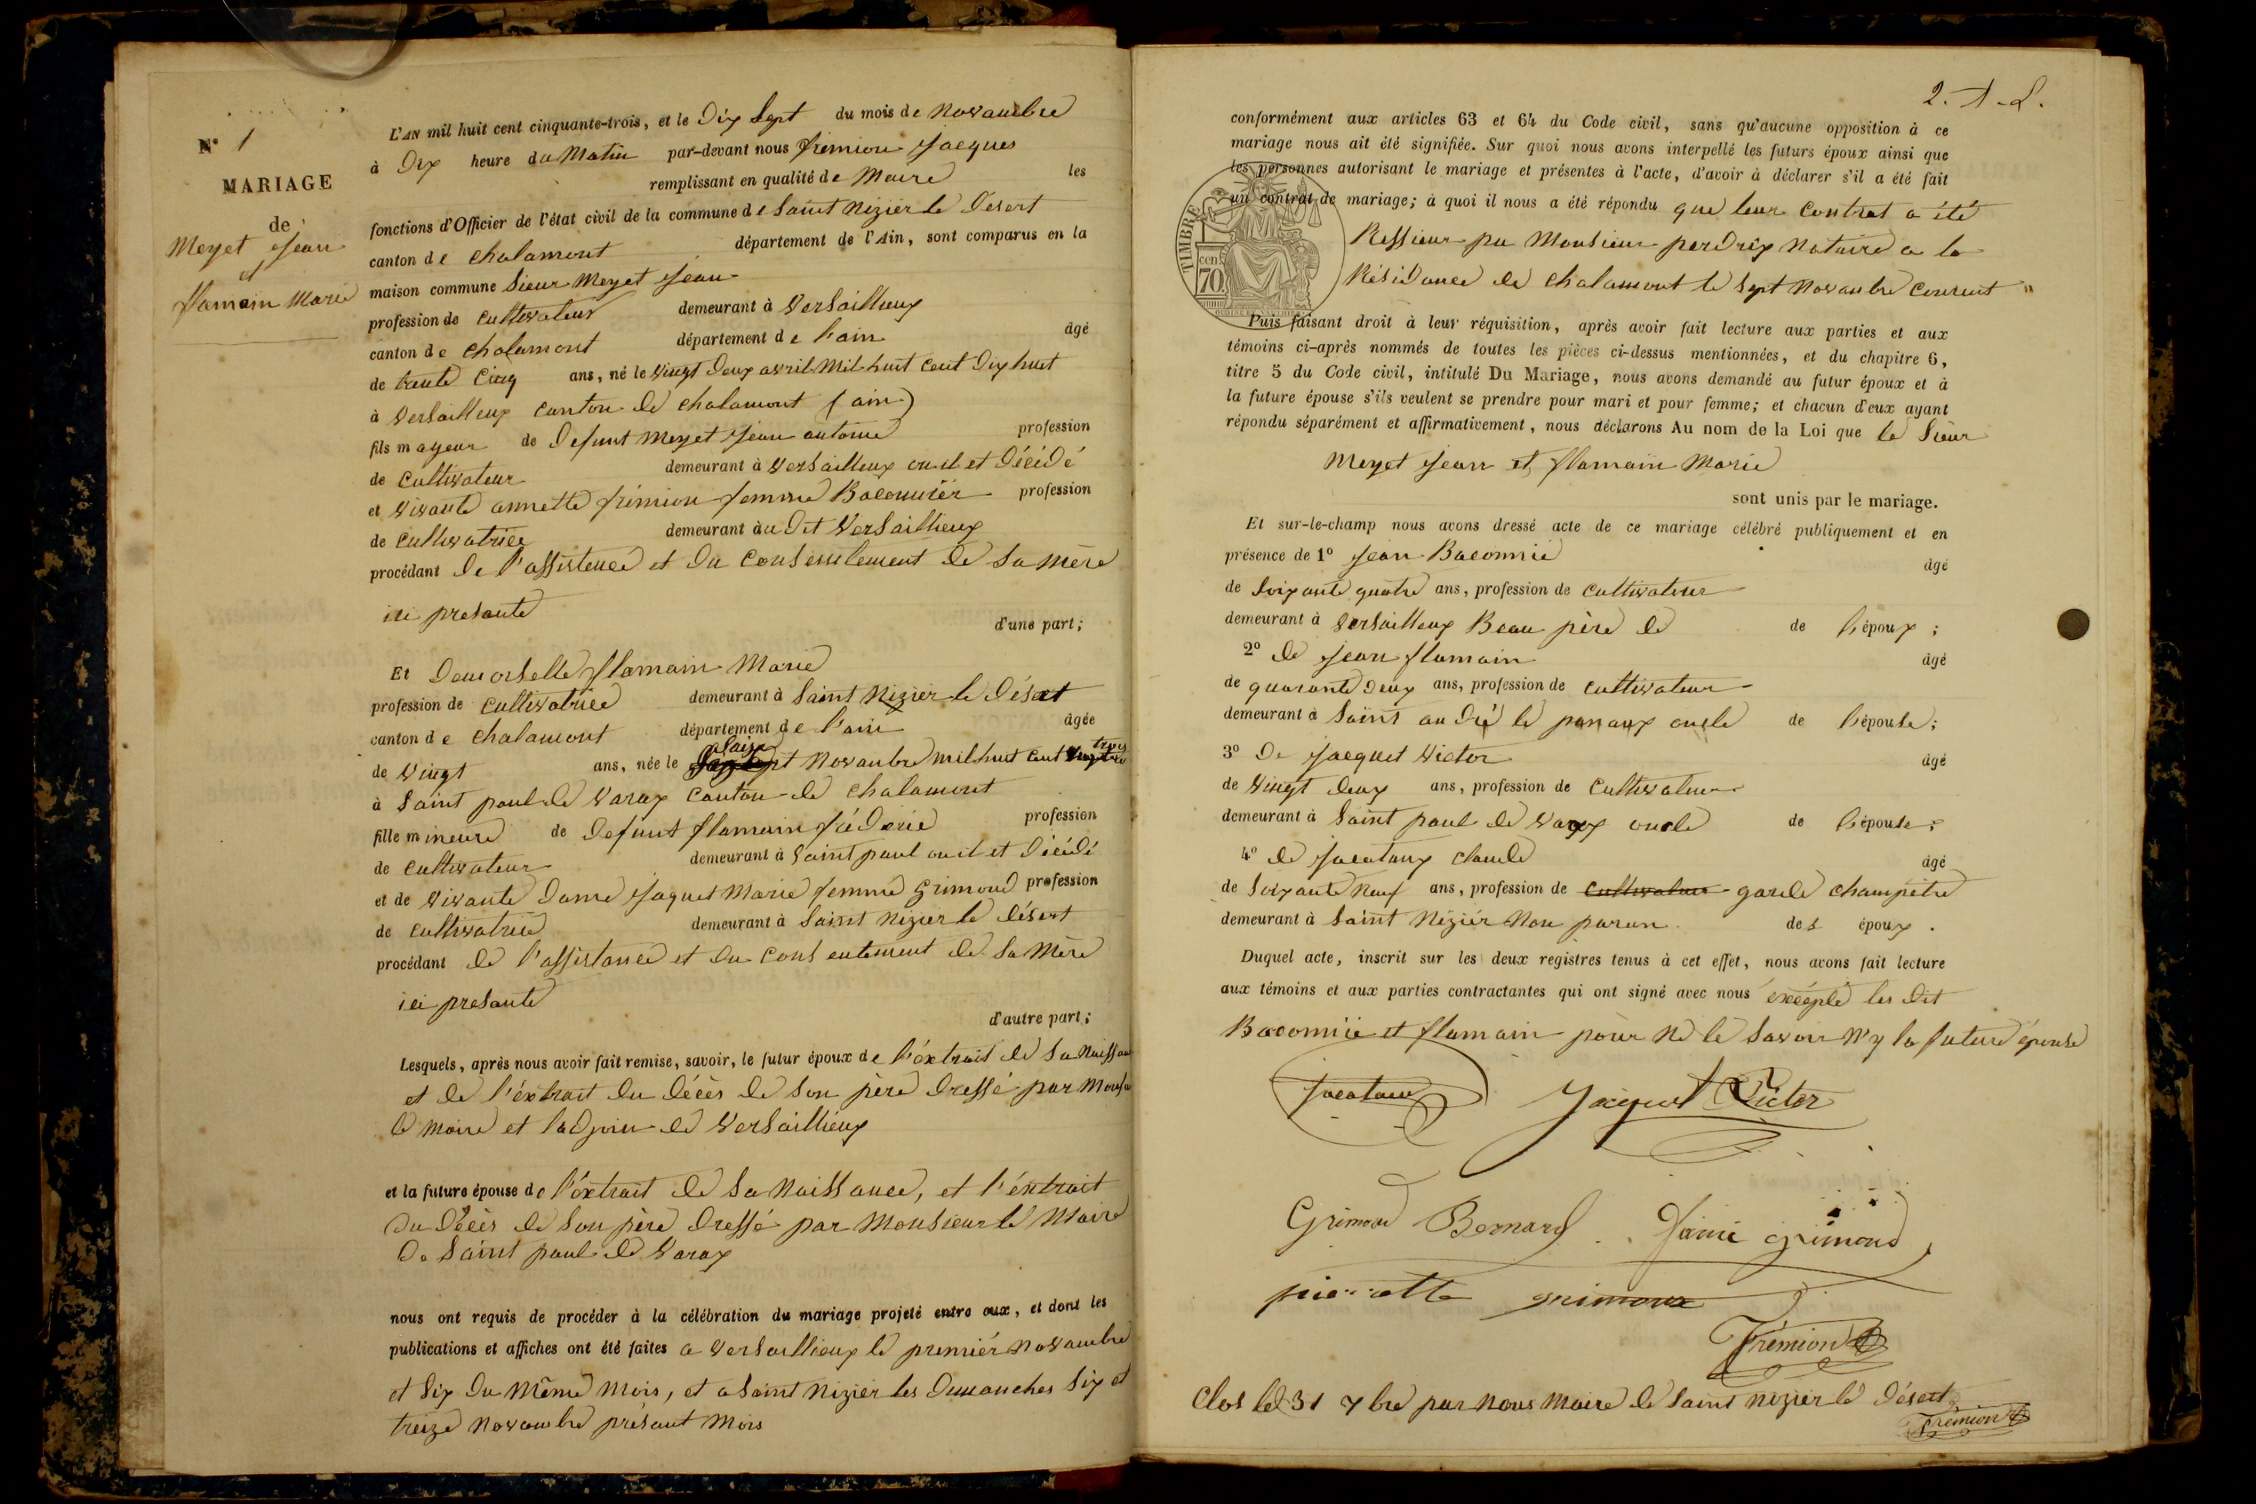 N° 1
MARIAGE
de
Meyet Jean
et
flamain Marie
L'AN mil huit cent cinquante-trois, et le Dix Sept du mois de Novambre
à Dix heure du Matin par-devant nous frémion Jacques
remplissant en qualité de Maire les
fonctions d'Officier de l'état civil de la commune de Saint Nizier le Désert
canton de chalamont département de l'Ain, sont comparus en la
maison commune Sieur Meyet Jean
profession de cultivateur demeurant à Versailleux
canton de chalamont département de l'ain âgé
de trente Cinq ans, né le Vingt Deux avril Mil huit Cent Dix huit
à Versailleux Canton de chalamont (ain)
fils mayeur de Defunt Meyet Jean antoine profession
de Cultivateur demeurant à Versailleux ou il et Décédé
et Vivante annette frémion femme Baconnier profession
de Cultivatrice demeurant à u Dit Versaillieux
procédant De l'assistence et Du Consentement De Sa Mère
ici presante
d'une part;
Et Demoiselle flamain Marie
profession de Cultivatrice demeurant à Saint Nizier le Désert
canton de Chalamont département de l'ain âgée
de Vingt ans, née le Novambre Mil huit Cent trois
à Saint paul de Varax Canton de Chalamont
fille mineure de Defunt flamain fréderic profession
de Cultivateur demeurant à Saint paul ou il et Décédé
et de Vivante Dame Jaquet Marie femme Grimoud profession
de Cultivatrice demeurant à Saint Nizier le Désert
procédant de l'assistance et du Consentement de Sa Mère
ici presante
d'autre part;
Lesquels, après nous avoir fait remise, savoir, le futur époux de l'éxtrait de Sa Naissan
et de l'éxtrait du Décès de Son père Dressé par Monsie
le Maire et l'adjoin de Versaillieux
et la future épouse de l'éxtrait de Sa Naissance, et l'éxtrait
du Décès de Son père Dressé par Monsieur le Maire
De Saint paul de Varax
nous ont requis de procéder à la célébration du mariage projeté entre eux, et dont les
publications et affiches ont été faites a Versaillieux le premiér Novambre
et Six Du Même Mois, et a Saint Nizier les Dimanches Six et
treize Novambre présant Mois
conformément aux articles 63 et 64 du Code civil, sans qu'aucune opposition à ce
mariage nous ait été signifiée. Sur quoi nous avons interpellé les futurs époux ainsi que
les personnes autorisant le mariage et présentes à l'acte, d'avoir à déclarer s'il a été fait
un contrat de mariage; à quoi il nous a été répondu que leur Contrat a été
Ressieur par Monsieur perdrix Notaire a la
Résidance de Chalamont le Sept Novambre Courent
TIMBRE
70 cent.
Puis faisant droit à leur réquisition, après avoir fait lecture aux parties et aux
témoins ci-après nommés de toutes les pièces ci-dessus mentionnées, et du chapitre 6,
titre 5 du Code civil, intitulé Du Mariage, nous avons demandé au futur époux et à
la future épouse s'ils veulent se prendre pour mari et pour femme; et chacun d'eux ayant
répondu séparément et affirmativement, nous déclarons Au nom de la Loi que le Sieur
Meyet Jean et flamain Marie
sont unis par le mariage.
Et sur-le-champ nous avons dressé acte de ce mariage célébré publiquement et en
présence de 1° Jean Baconnié âgé
de Soixante quatre ans, profession de Cultivateur
demeurant à Versailleux Beau père de de l'époux;
2° de Jean flamain âgé
de quarante Deux ans, profession de Cultivateur
demeurant à Saint andré le panoux oncle de l'épouse;
3° De Jacquet Victor âgé
de Vingt Deux ans, profession de Cultivateur
demeurant à Saint paul de Varax oncle de l'épouse;
4° de Jacotaux Claude âgé
de Soixante Neuf ans, profession de Cultivateur garde Champêtre
demeurant à Saint Nizier Non paran des époux.
Duquel acte, inscrit sur les deux registres tenus à cet effet, nous avons fait lecture
aux témoins et aux parties contractantes qui ont signé avec nous éxcépté les Dit
Baconnié et flamain pour Ne le Savoir N'y la future épouse
Jacotaux Jacquet Victor
Grimoud Bernard Grimoud
pierrette Grimoux
Frémion
Clos le 31 Xbre par Nous Maire de Saint Nizier le Désert
Frémion